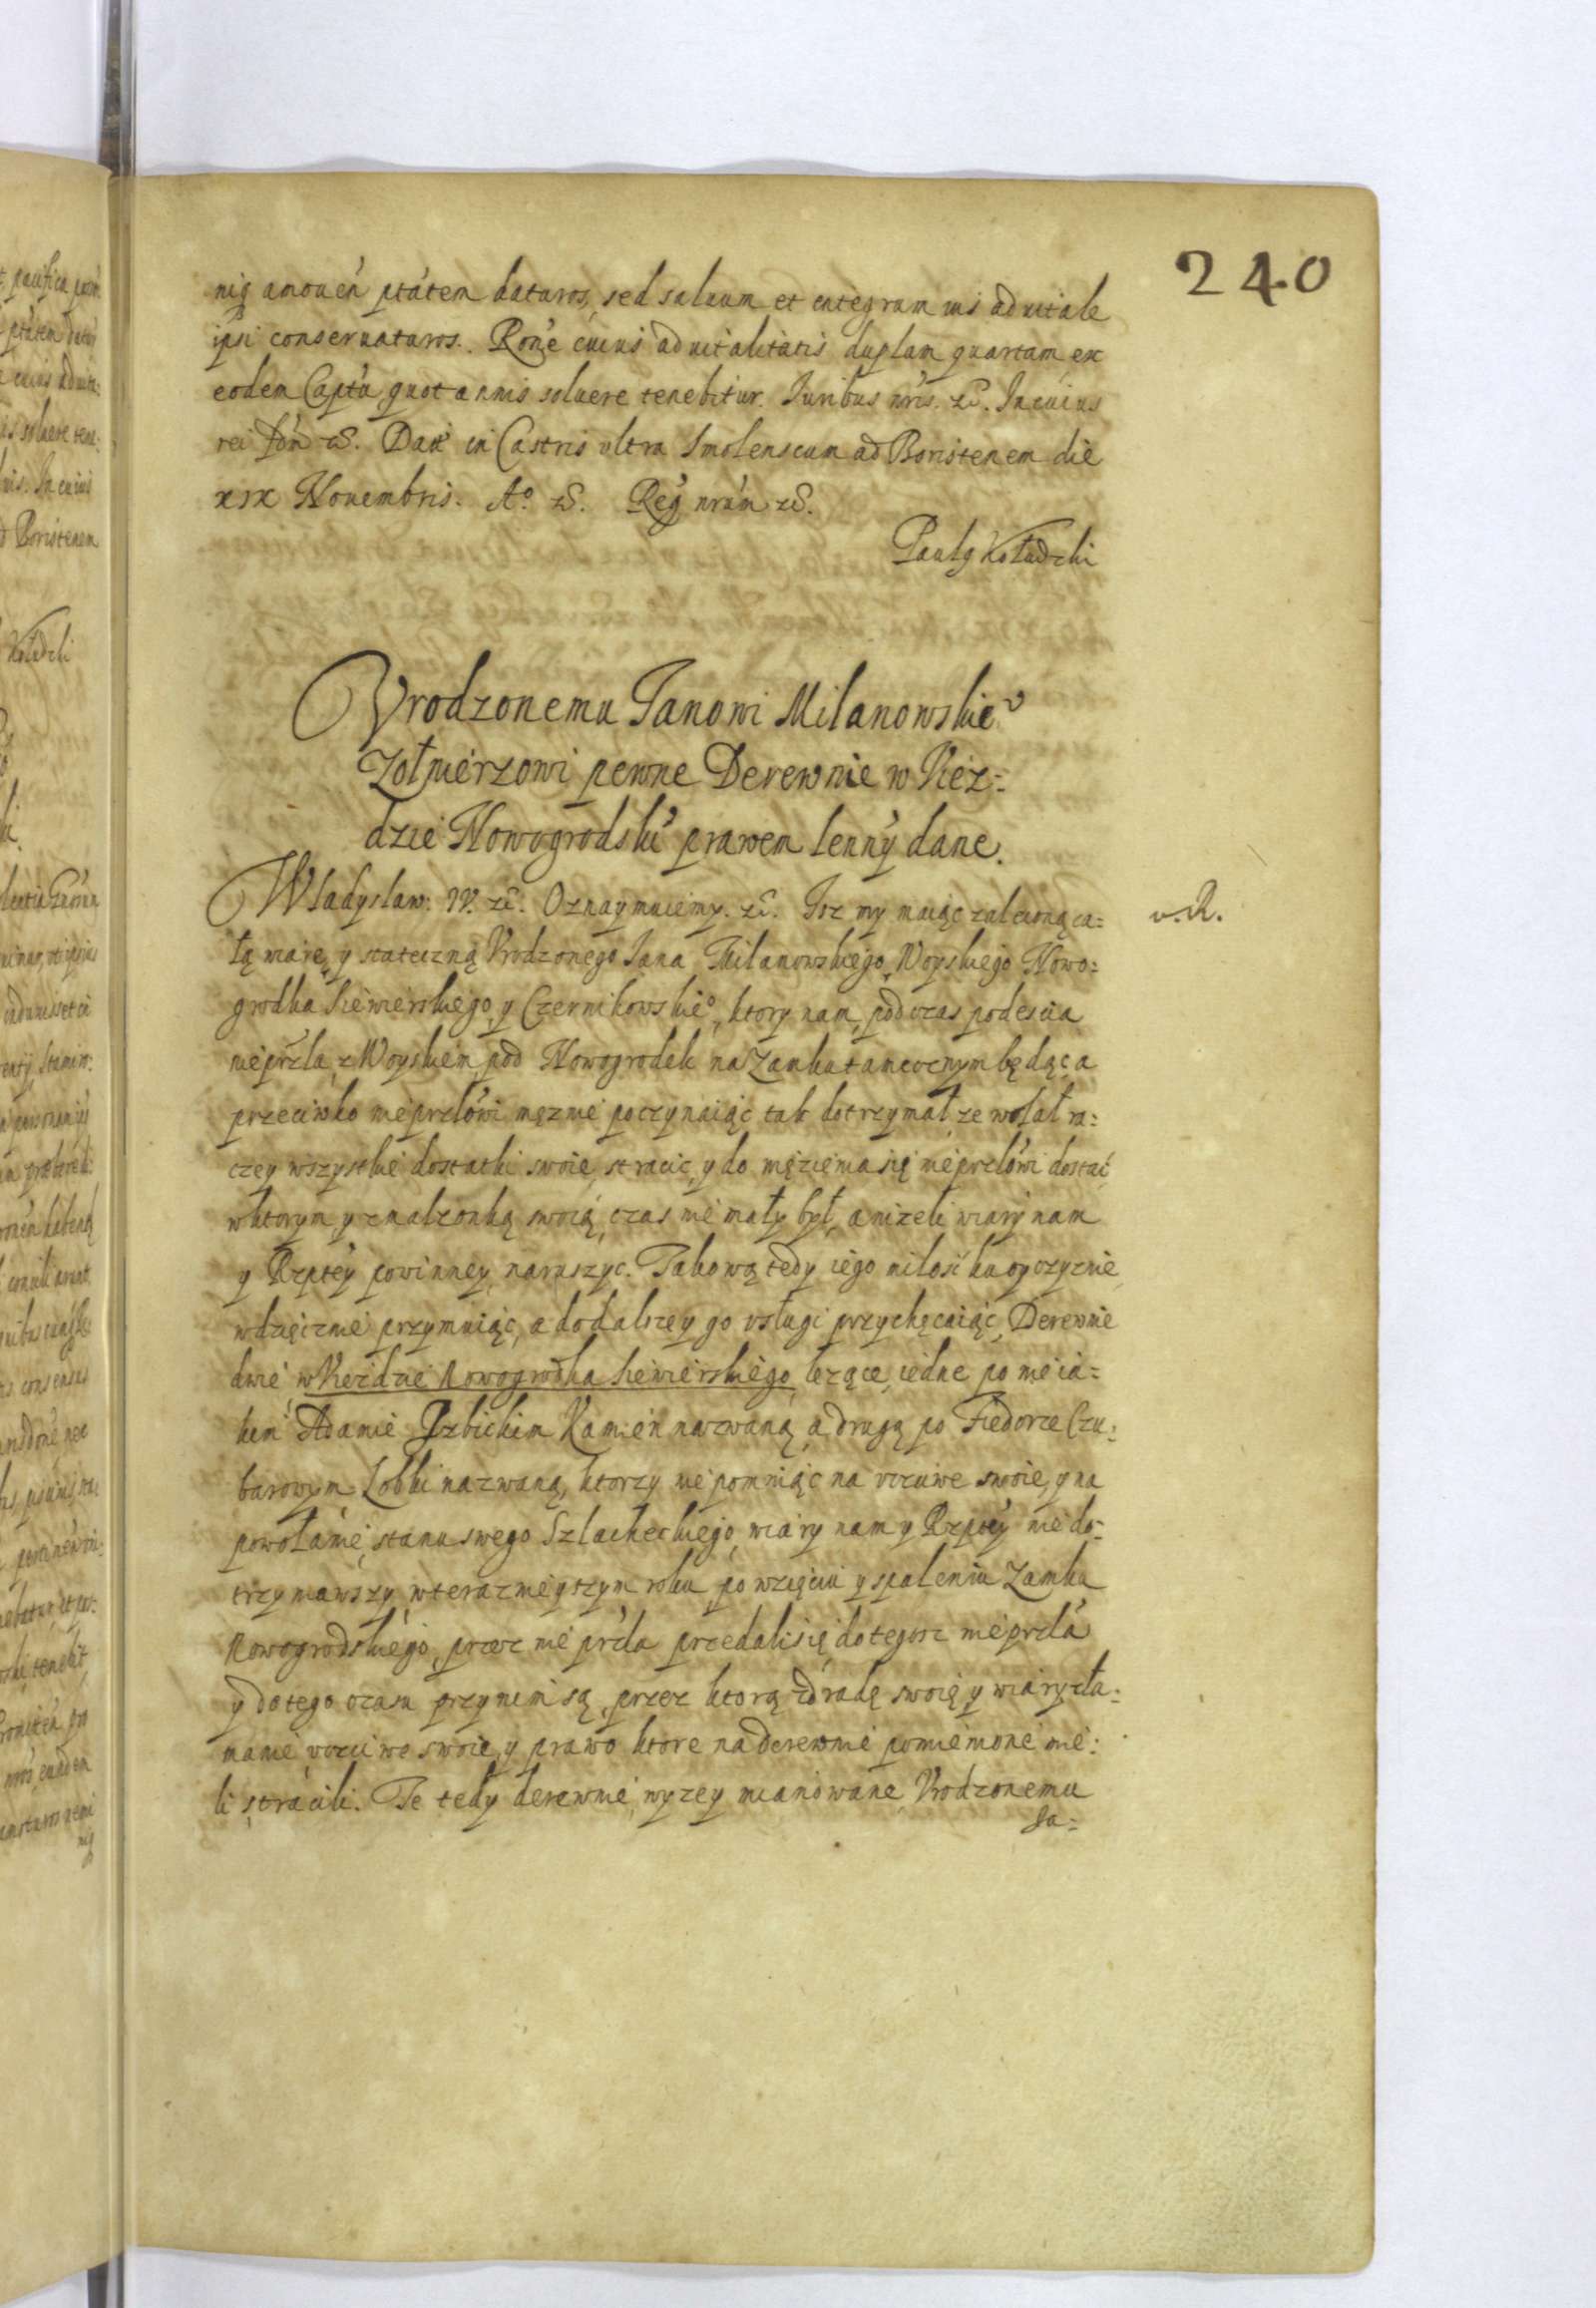 240
nią amouen̄ ptãtem daturos, sed saluum et integrum ius aduitale
ipsi conseruaturos. Rone̅ cuius aduitalitatis duplam quartam ex
eodem Captu̅ quot annis soluere tenebitur. Iuribus nris. etc. In cuius
rei fón etc. Dat in Castris vltra Smolenscum ad Boristenem die
XIX Nouembris. Aº. etc. Reg nrum etc.
Paulg Kołudzki
Vrodzonemu Janowi Milanowskieº
Zołnierzowi pewne Derewnie w Viez=
dzie Nowogrodskī prawem lennÿ dane.
Władysław: IV. etc. Oznaymuiemy. etc. Isz my maiąc zaleconą ca=
v. R.
łą wiarę, y stateczną Vrodzonego Jana Milanowskiego Woyskiego Nowo=
grodka Siewierskiego, y Czernikowskieº, ktory nam, pod czas podescia
nieprzla, z Woyskiem, pod Nowogrodek na Zamku tamecznym będąc, a
przeciwko nieprzlowi męznie poczynaiąc tak dotrzymał, ze wolał ra=
czey wszystkie dostatki swoie, stracic, y do męzienia się nieprzlowi dostać,
w ktorym y z małzonką swoią, czas nie mały był, a nizeli wiary nam
y Rzptey powinney naruszyc. Takową tedy iego miłosć ku oyczyznie
wdzięcznie przymuiąc, a do dalszey go vsługi przychęcaiąc, Derewnie
dwie, w Viezdzie Nowogrodka Siewierskiego, lezące, iedne po nieia=
kim Adamie Izbickim Kamień nazwaną, a drugą po Fiedorze Czu=
barowym Lobki nazwaną, ktorzy nie pomniąc na vczciwe swoie, y na
powołanie, stanu swego Szlacheckiego, wiary nam y Rzptey nie do=
trzymawszy, w teraznieyszym roku po wzięciu y spaleniu Zamku
Nowogrodskiego, przez nieprzla przedali się do tegosz nieprzla
y do tego czasu przy nim są, przez ktorą zdradę swoię y wiary zła=
manie, vczciwe swoie, y prawo ktore na derewnie pomienione mie=
li, stracili. Te tedy derewnie, wyzey mianowane, Vrodzonemu
Ja=